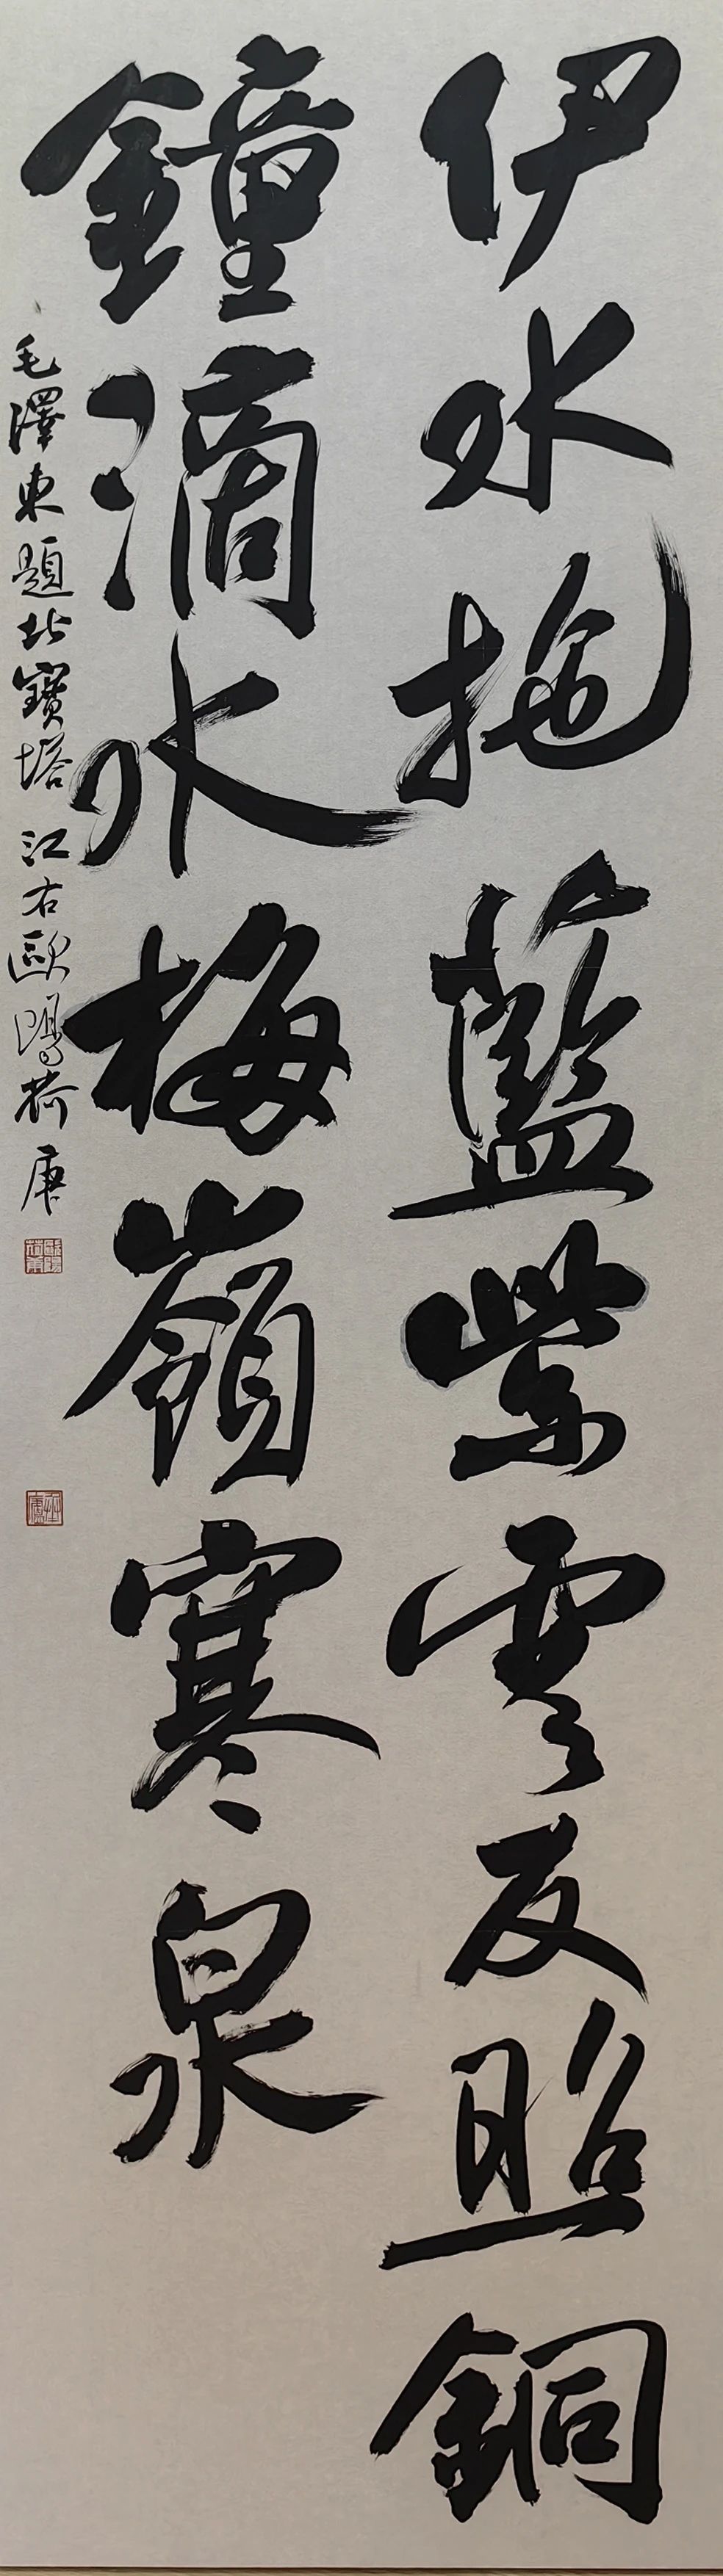 伊水拖藍紫雲反照銅
鐘滴水梅嶺寒泉
毛澤東題北寶塔 江右歐陽荷庚